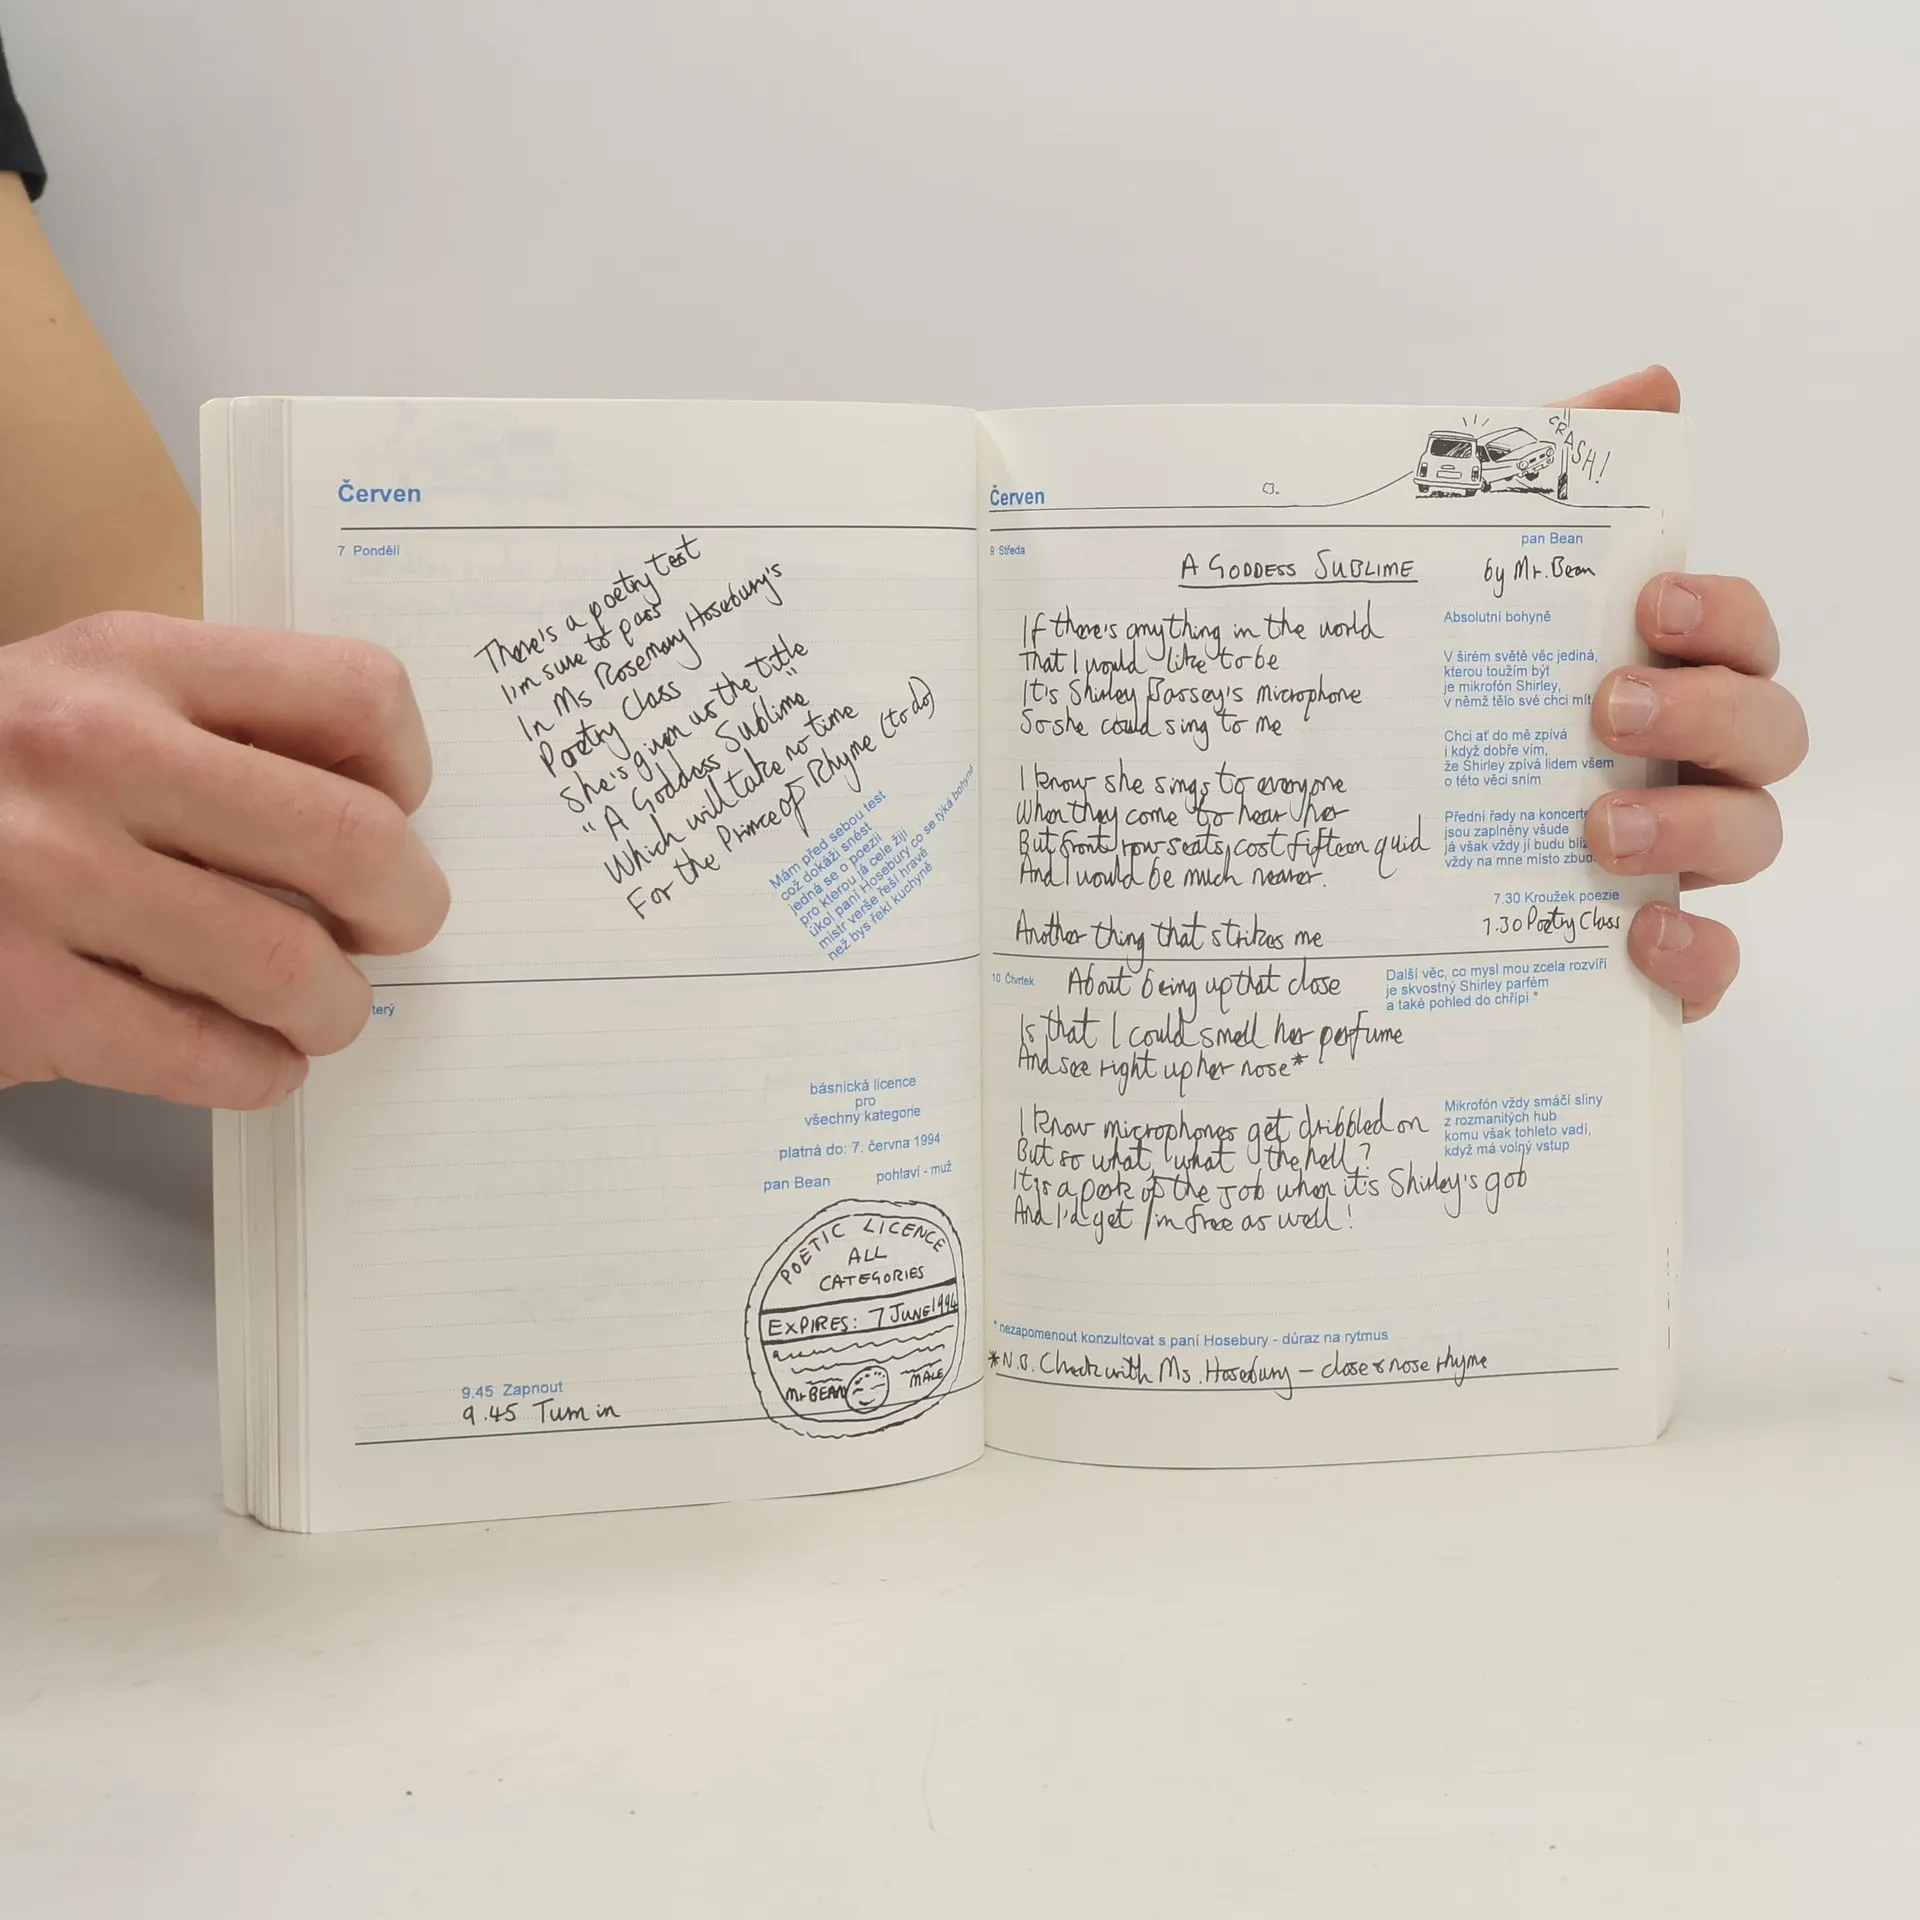 Červen
7 Pondělí
There's a poetry test
I'm sure to pass
In Ms Rosemary Hosebury's
Poetry Class
She's given us the title
"A Goddess Sublime"
Which will take no time
For the Prince of Rhyme (to do)
Mám před sebou test
což dokáži snést
jedná se o poezii
pro kterou já cele žiji
úkol paní Hosebury co se týká bohyně
mistr verše řeší hravě
než bys řekl kuchyně
terý
básnická licence
pro
všechny kategorie
platná do: 7. června 1994
pan Bean pohlaví - muž
POETIC LICENCE
ALL
CATEGORIES
EXPIRES: 7 JUNE 1994
Mr BEAN MALE
9.45 Zapnout
9.45 Turn in
CRASH!
Červen
9 Středa
pan Bean
A GODDESS SUBLIME by Mr. Bean
Absolutní bohyně
If there's anything in the world
That I would like to be
It's Shirley Bassey's microphone
So she could sing to me
V širém světě věc jediná,
kterou toužím být
je mikrofón Shirley,
v němž tělo své chci mít
Chci ať do mě zpívá
i když dobře vím,
že Shirley zpívá lidem všem
o této věci sním
I know she sings to everyone
When they come to hear her
But front row seats cost fifteen quid
And I would be much nearer.
Přední řady na koncerte
jsou zaplněny všude
já však vždy jí budu blíž
vždy na mne místo zbud
7.30 Kroužek poezie
7.30 Poetry Class
Another thing that strikes me
10 Čtvrtek
About being up that close
Is that I could smell her perfume
And see right up her nose*
Další věc, co mysl mou zcela rozvíří
je skvostný Shirley parfém
a také pohled do chřípí *
I know microphones get dribbled on
But so what, what the hell?
It is a perk of the job when it's Shirley's gob
And I'd get in free as well!
Mikrofón vždy smáčí sliny
z rozmanitých hub
komu však tohleto vadí,
když má volný vstup
* nezapomenout konzultovat s paní Hosebury - důraz na rytmus
*N.B. Check with Ms. Hosebury – close & nose rhyme